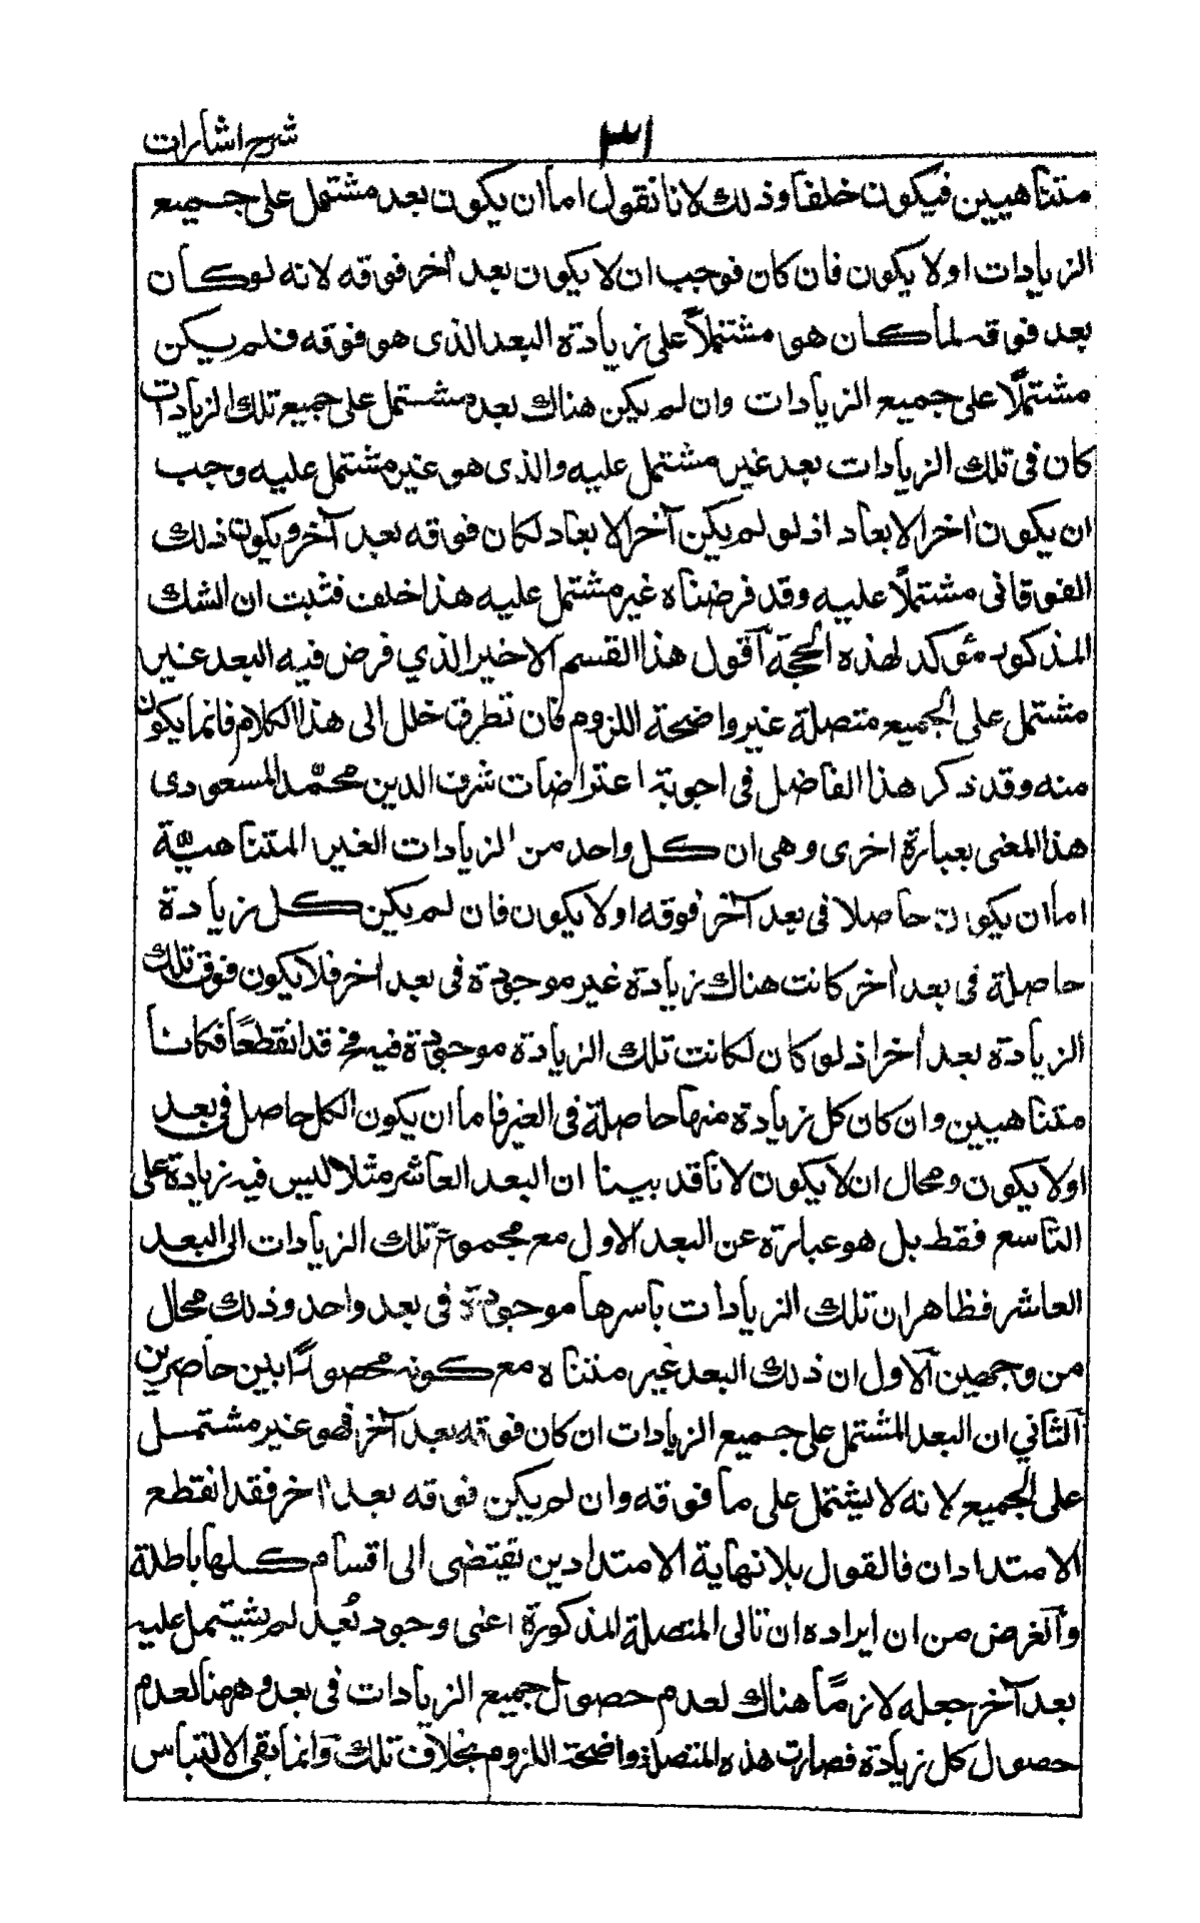 شرح اشارات
٣١
متناهيين فيكون خلفا وذلك لانا نقول اما ان يكون بعد مشتمل على جميع
الزيادات او لا يكون فان كان فوجب ان لا يكون بعد اخر فوقه لانه لو كان
بعد فوقه لما كان هو مشتملاً على زيادة البعد الذى هو فوقه فلم يكن
مشتملًا على جميع الزيادات وان لم يكن هناك بعد مشتمل على جميع تلك الزيادات
كان فى تلك الزيادات بعد غير مشتمل عليه والذى هو غير مشتمل عليه وجب
ان يكون اخر الابعاد اذ لو لم يكن آخر الابعاد لكان فوقه بعد آخر ويكون ذلك
الفوقانى مشتملًا عليه وقد فرضناه غير مشتمل عليه هذا خلف فثبت ان الشك
المذكور مؤكد لهذه الحجة آقول هذا القسم الاخير الذي فرض فيه البعد غير
مشتمل على الجميع متصلة غير واضحة اللزوم فان تطرق خلل الى هذا الكلام فانما يكون
منه وقد ذكر هذا الفاضل فى اجوبة اعتراضات شرف الدين محمّد المسعودى
هذا المعنى بعبارة اخرى وهى ان كل واحد من الزيادات الغير المتناهيّة
اما ان يكون حاصلا فى بعد آخر فوقه او لا يكون فان لم يكن كل زيادة
حاصلة فى بعد اخر كانت هناك زيادة غير موجودة فى بعد اخر فلا يكون فوق تلك
الزيادة بعد اخر اذ لو كان لكانت تلك الزيادة موجودة فيه فح قد انقطعا فكانا
متناهيين وان كان كل زيادة منها حاصلة فى الغير فاما ان يكون الكل حاصل فى بعد
او لا يكون ومحال ان لا يكون لانا قد بينا ان البعد العاشر مثلا لليس فيه زيادة على
التاسع فقط بل هو عبارة عن البعد الاول مع مجموع تلك الزيادات الى البعد
العاشر فظاهر ان تلك الزيادات باسرها موجودة فى بعد واحد وذلك محال
من وجهين آلاول ان ذلك البعد غير متناه مع كونه محصورًا بين حاصرين
آلثاني ان البعد المشتمل على جميع الزيادات ان كان فوقه بعد آخر فهو غير مشتمل
على الجميع لانه لا يشتمل على ما فوقه وان لم يكن فوقه بعد اخر فقد انقطع
الامتدادان فالقول بلا نهاية الامتدادين يقتضى الى اقسام كلها باطلة
وآلغرض من ان ايراده ان تالى المتصلة المذكورة اعنى وجود بُعد لم يشتمل عليه
بعد آخر جعله لازمًا هناك لعدم حصول جميع الزيادات فى بعد وههنا لعدم
حصول كل زيادة فصارت هذه المتصلة واضحة اللزوم بخلاف تلك وآنما بقى الالتباس